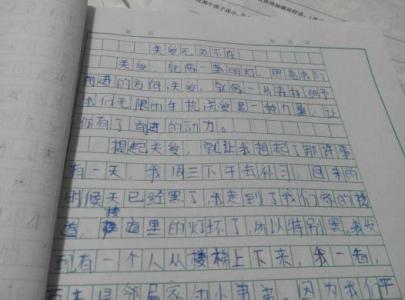 关爱无处不在
关爱，就像一盏明灯，照亮我们
前进的方向；关爱，就像一
我们无限的生机；关爱是一种力量，让
你有了奋进的动力。
提起关爱，就让我想起了那件事
有一天，我周三下午去补习，回来的
时候天已经黑了，我走到了我们家的楼
道，楼道里的灯坏了，所以特别黑，我发
到有一个人从楼梯上下来，我一看，
是邻居家的小弟弟，因为我平